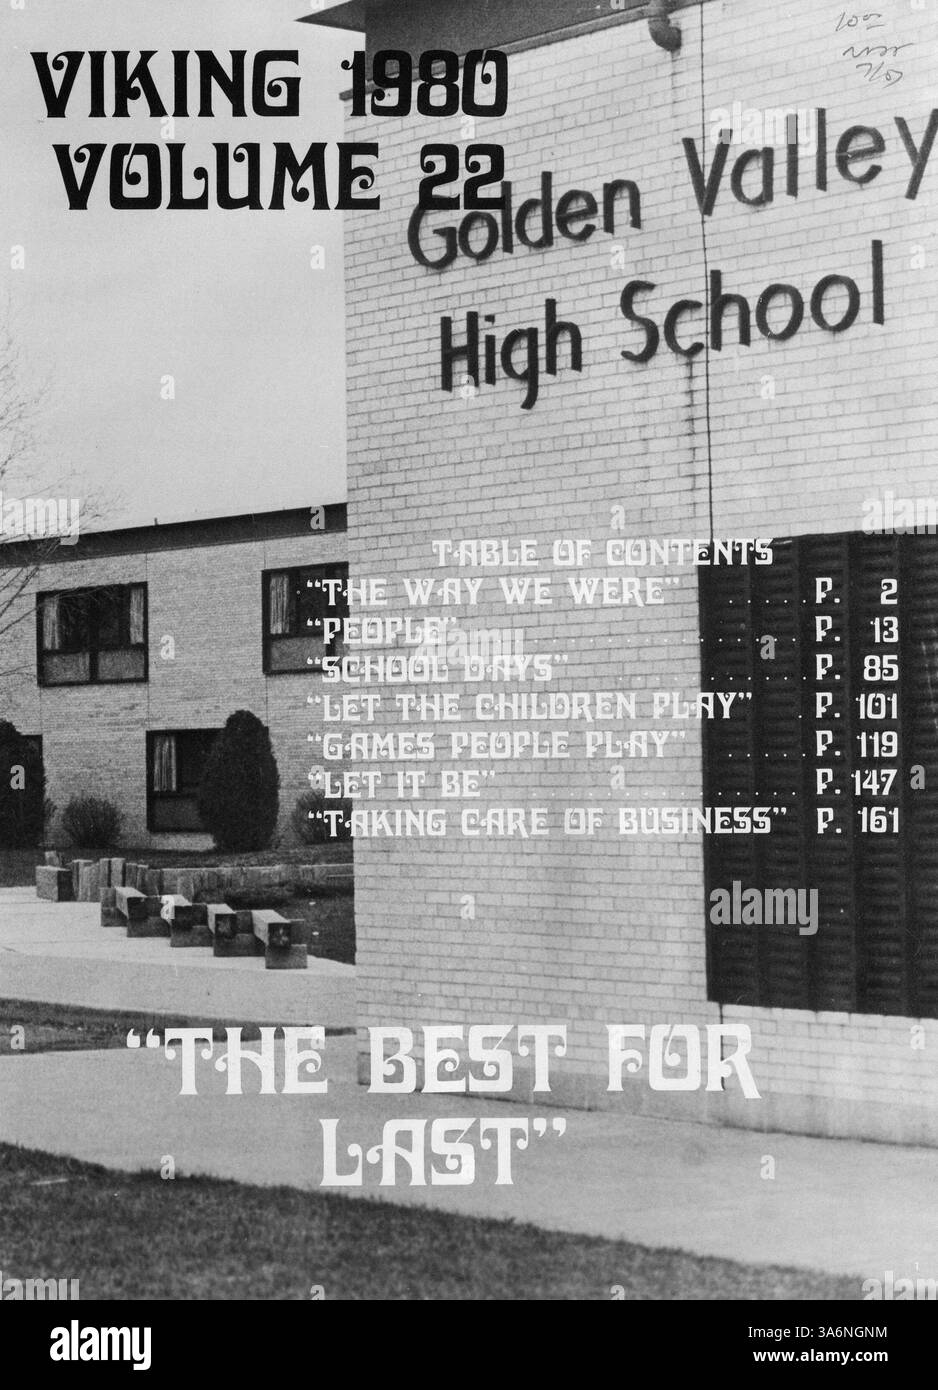 VIKING 1980
VOLUME 22
Golden Valley
High School
TABLE OF CONTENTS
"THE WAY WE WERE" . . . . . P. 2
"PEOPLE" . . . . . . . . . . . . . . . . . . . . P. 13
"SCHOOL DAYS" . . . . . . . . . . . . . P. 85
"LET THE CHILDREN PLAY" . P. 101
"GAMES PEOPLE PLAY" . . . . . P. 119
"LET IT BE" . . . . . . . . . . . . . . . . . . P. 147
"TAKING CARE OF BUSINESS" P. 161
"THE BEST FOR
LAST"
alamy
alamy
Image ID: 3A6NGNM
www.alamy.com